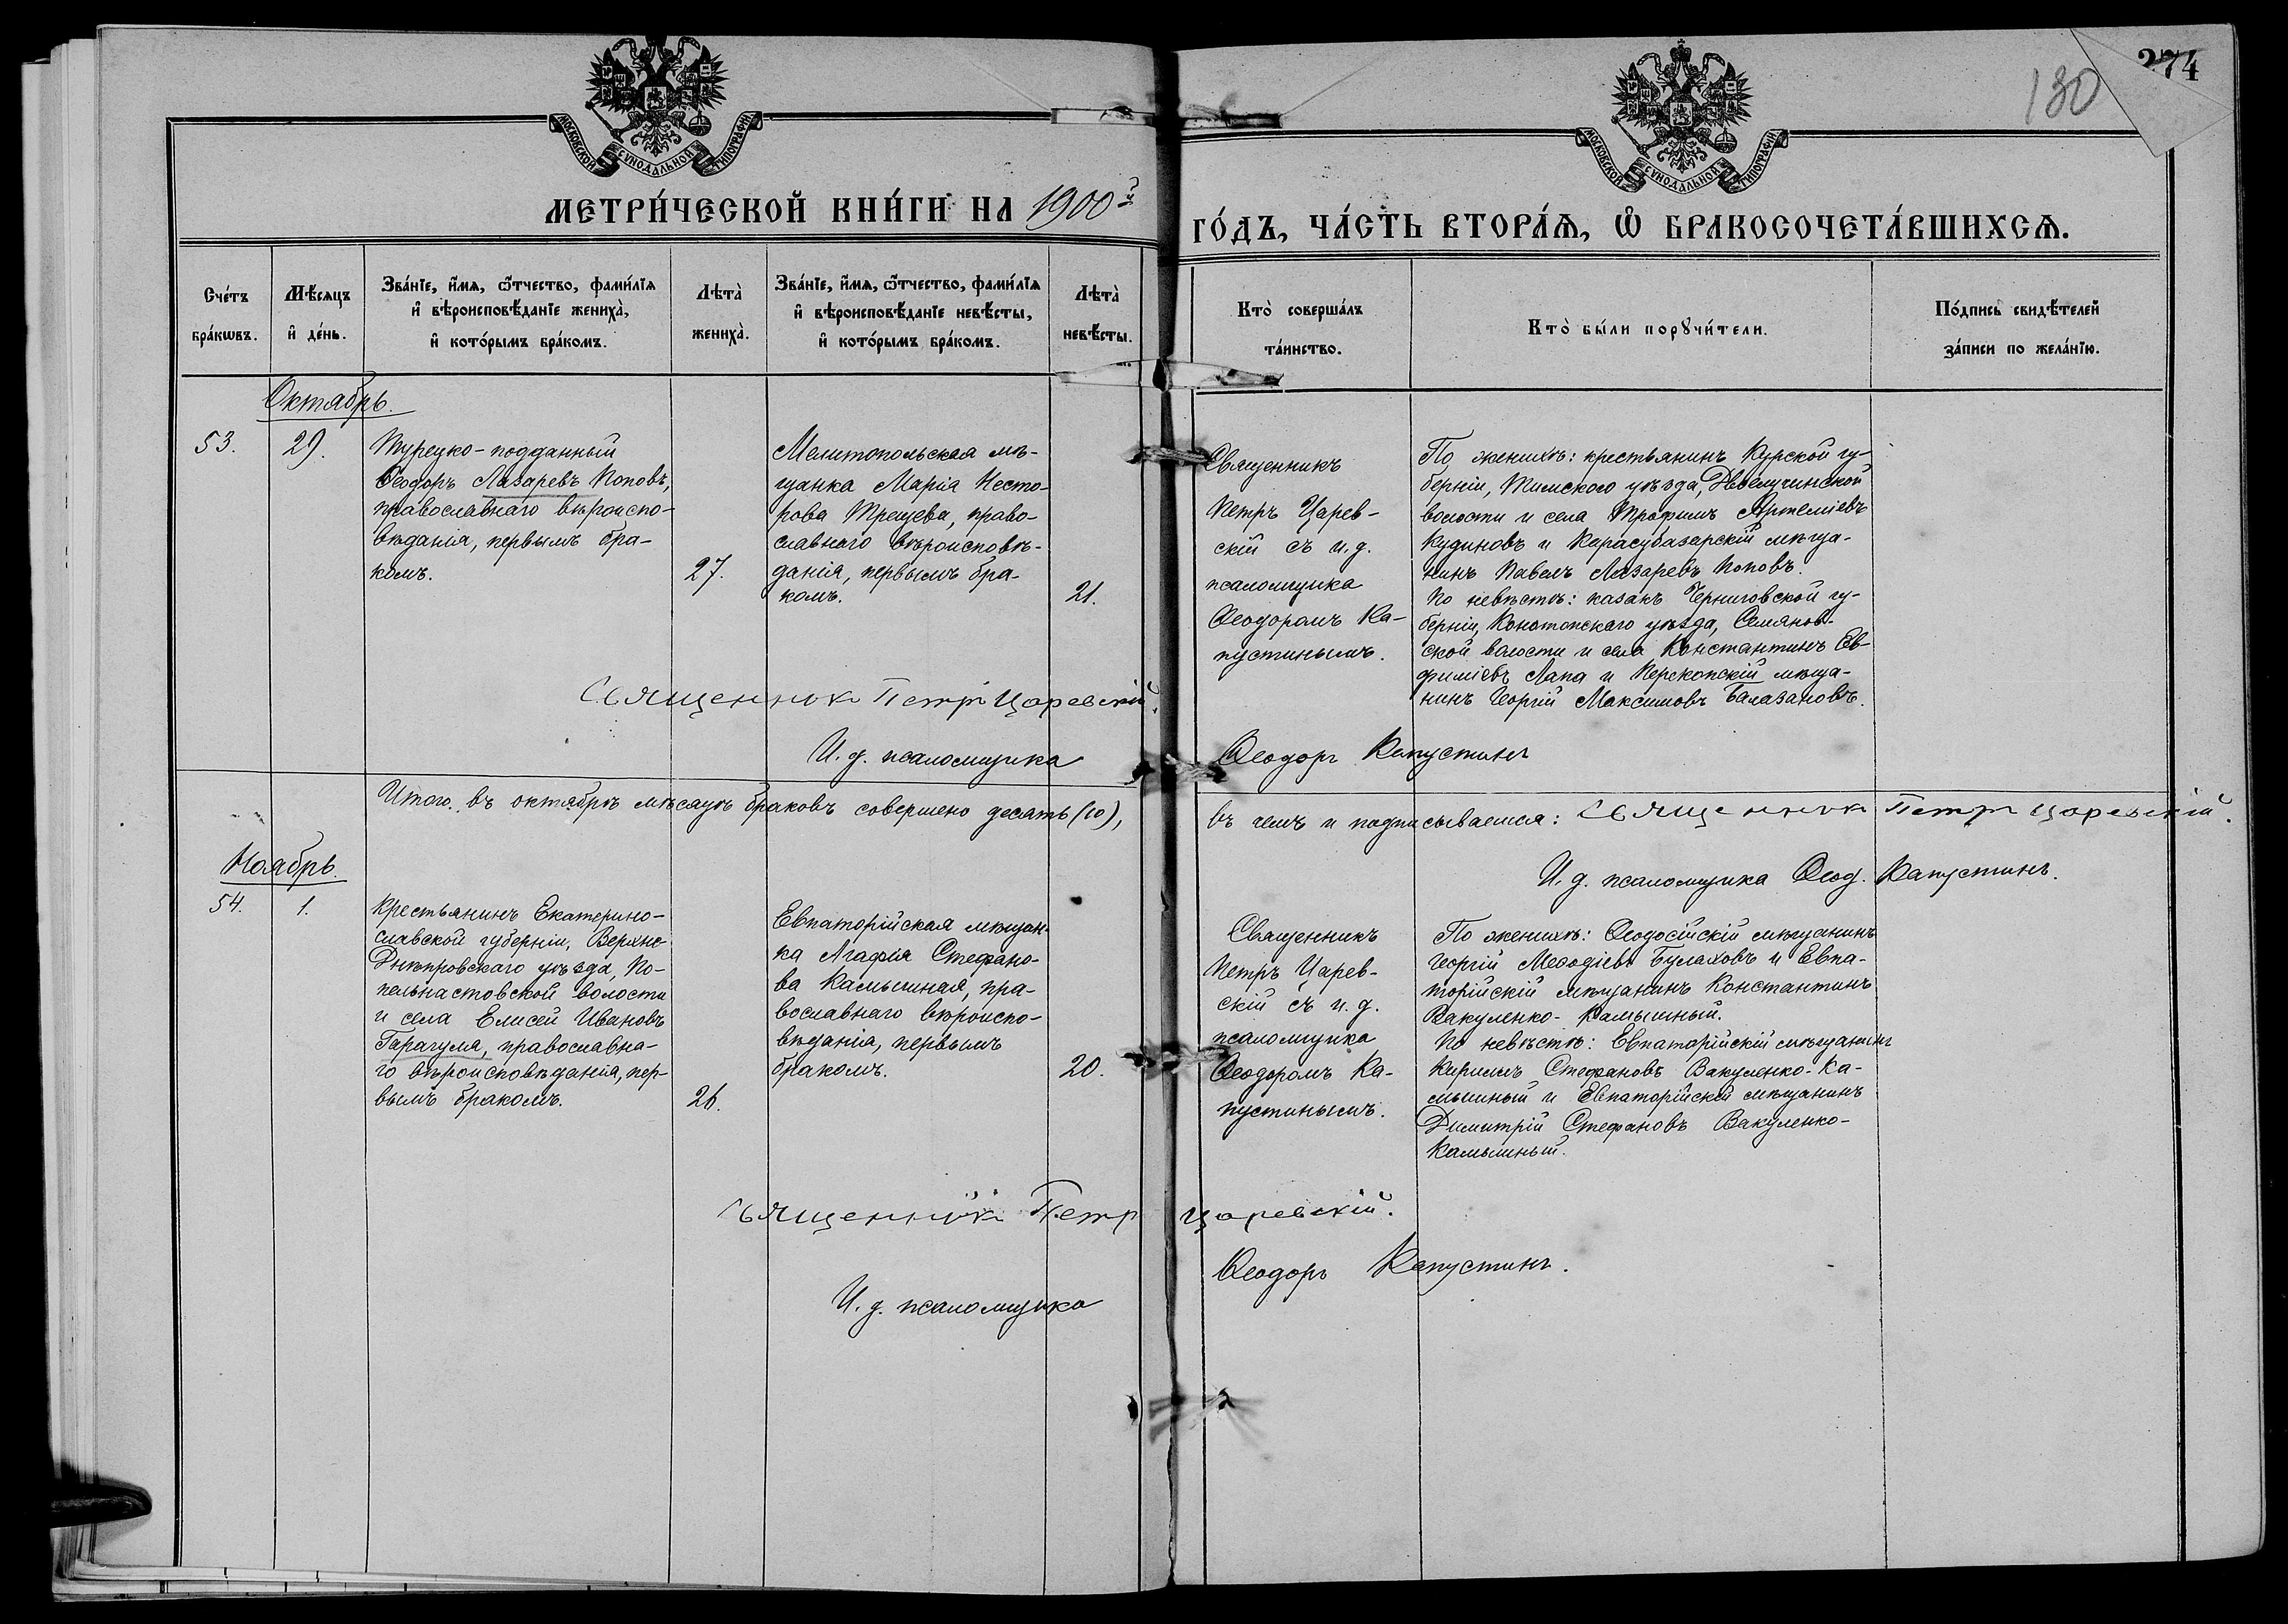 274
130
МОСКОВСКОЙ СѴНОДАЛЬНОЙ ТИПОГРАФІИ
МОСКОВСКОЙ СѴНОДАЛЬНОЙ ТИПОГРАФІИ
МЕТРИ́ЧЕСКОЙ КНИ́ГИ НА 1900й
ГО́ДЪ, ЧА́СТЬ ВТОРА́Я, Ѡ БРАКОСОЧЕТА́ВШИХСЯ.
Сче́тъ
бра́кωвъ.
Мѣ́сяцъ
и де́нь.
Зва́нїе, и́мя, ѻ҆́тчество, фами́лїя
и вѣроисповѣ́данїе жениха̀,
и кото́рымъ бра́комъ.
Лѣта̀
жениха̀.
Зва́нїе, и́мя, ѻ҆́тчество, фами́лїя
и вѣроисповѣ́данїе невѣ́сты,
и кото́рымъ бра́комъ.
Лѣта̀
невѣ́сты.
Кто̀ соверша́лъ
та́инство.
Кто̀ бы́ли порꙋчи́тели.
По́дпись свидѣ́телей
за́писи по жела́нїю.
Октябрь.
53.
29.
Турецко-подданный
Ѳеодоръ Лазаревъ Поповъ,
православнаго вѣроиспо-
вѣданія, первымъ бра-
комъ.
27.
Мелитопольская мѣ-
щанка Марія Несто-
рова Трещева, право-
славнаго вѣроисповѣ-
данія, первымъ бра-
комъ.
21.
Священникъ
Петръ Царев-
скій съ и.д.
псаломщика
Ѳеодоромъ Ка-
пустинымъ.
По женихѣ: крестьянинъ Курской гу-
берніи, Тимского уѣзда, Двоелучинской
волости и села Трофимъ Артеміевъ
Кудиновъ и Карасубазарскій мѣща-
нинъ Павелъ Лазаревъ Поповъ.
По невѣстѣ: казакъ Черниговской гу-
берніи, Конотопскаго уѣзда, Семянов-
ской волости и села Константинъ Ев-
фиміевъ Лапа и Перекопскій мѣща-
нинъ Георгій Максимовъ Балабановъ.
Священникъ Петръ Царевскій.
И. д. псаломщика Ѳеодоръ Капустинъ
Итого въ октябрѣ мѣсяцѣ браковъ совершено десять (10), въ чемъ и подписываемся: Священникъ Петръ Царевскій.
И. д. псаломщика Ѳеод. Капустинъ.
Ноябрь.
54.
1.
Крестьянинъ Екатерино-
славской губерніи, Верхне-
Днѣпровскаго уѣзда, По-
пельнастовской волости
и села Елисей Ивановъ
Гарагуля, православна-
го вѣроисповѣданія, пер-
вымъ бракомъ.
26.
Евпаторійская мѣщан-
ка Агафія Стефано-
ва Камышная, пра-
вославнаго вѣроиспо-
вѣданія, первымъ
бракомъ.
20.
Священникъ
Петръ Царев-
скій съ и.д.
псаломщика
Ѳеодоромъ Ка-
пустинымъ.
По женихѣ: Ѳеодосійскій мѣщанинъ
Георгій Меѳодіевъ Булаховъ и Евпа-
торійскій мѣщанинъ Константинъ
Вакуленко-Камышный.
По невѣстѣ: Евпаторійскій мѣщанинъ
Кириллъ Стефановъ Вакуленко-Ка-
мышный и Евпаторійскій мѣщанинъ
Димитрій Стефановъ Вакуленко-
Камышный.
Священникъ Петръ Царевскій.
И. д. псаломщика Ѳеодоръ Капустинъ.